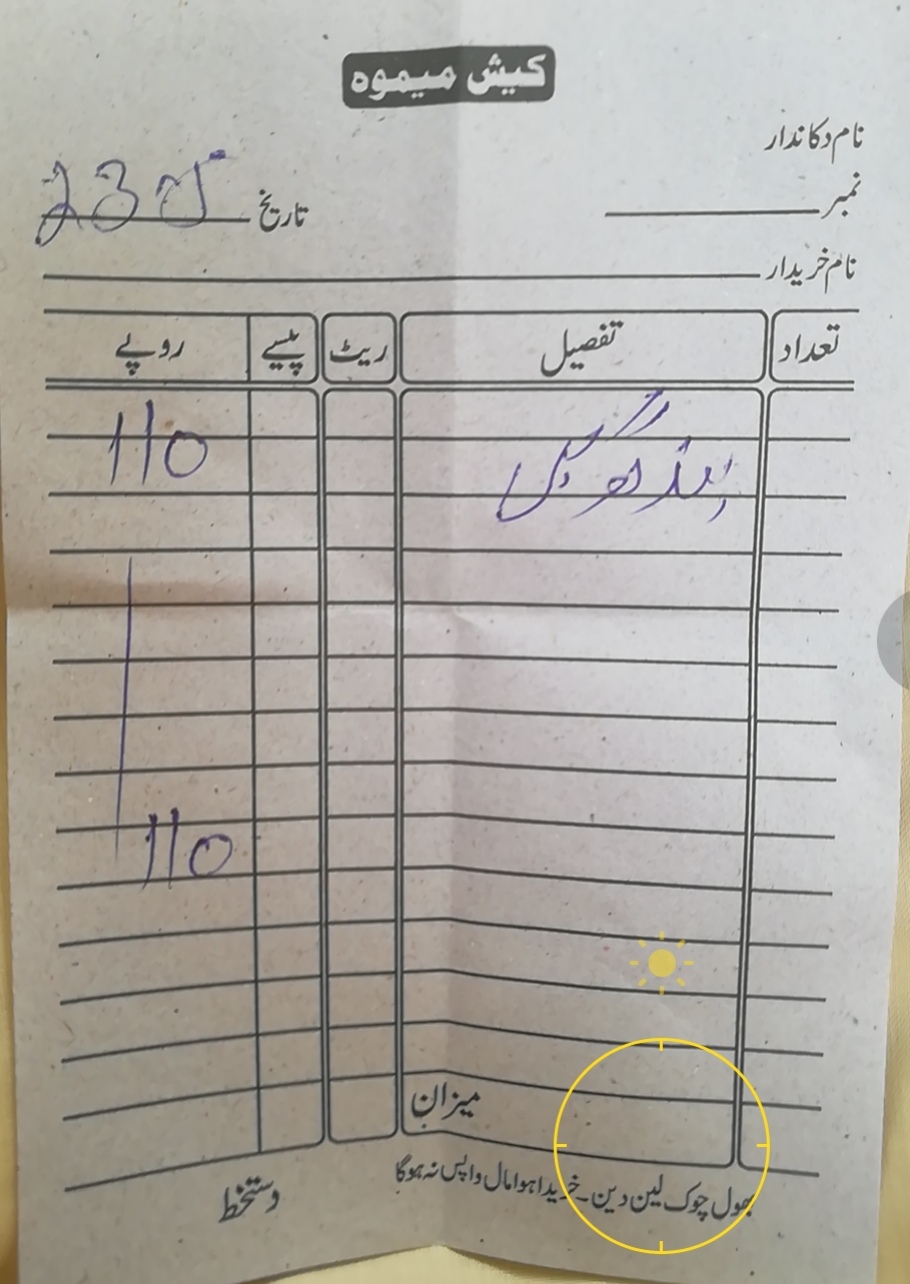 کیش میمو
نام دکاندار
نمبر
تاریخ
نام خریدار
تعداد تفصیل ریٹ پیسے روپے
110
110
میزان
بھول چوک لین دین۔ خریدا ہوا مال واپس نہ ہوگا
دستخط